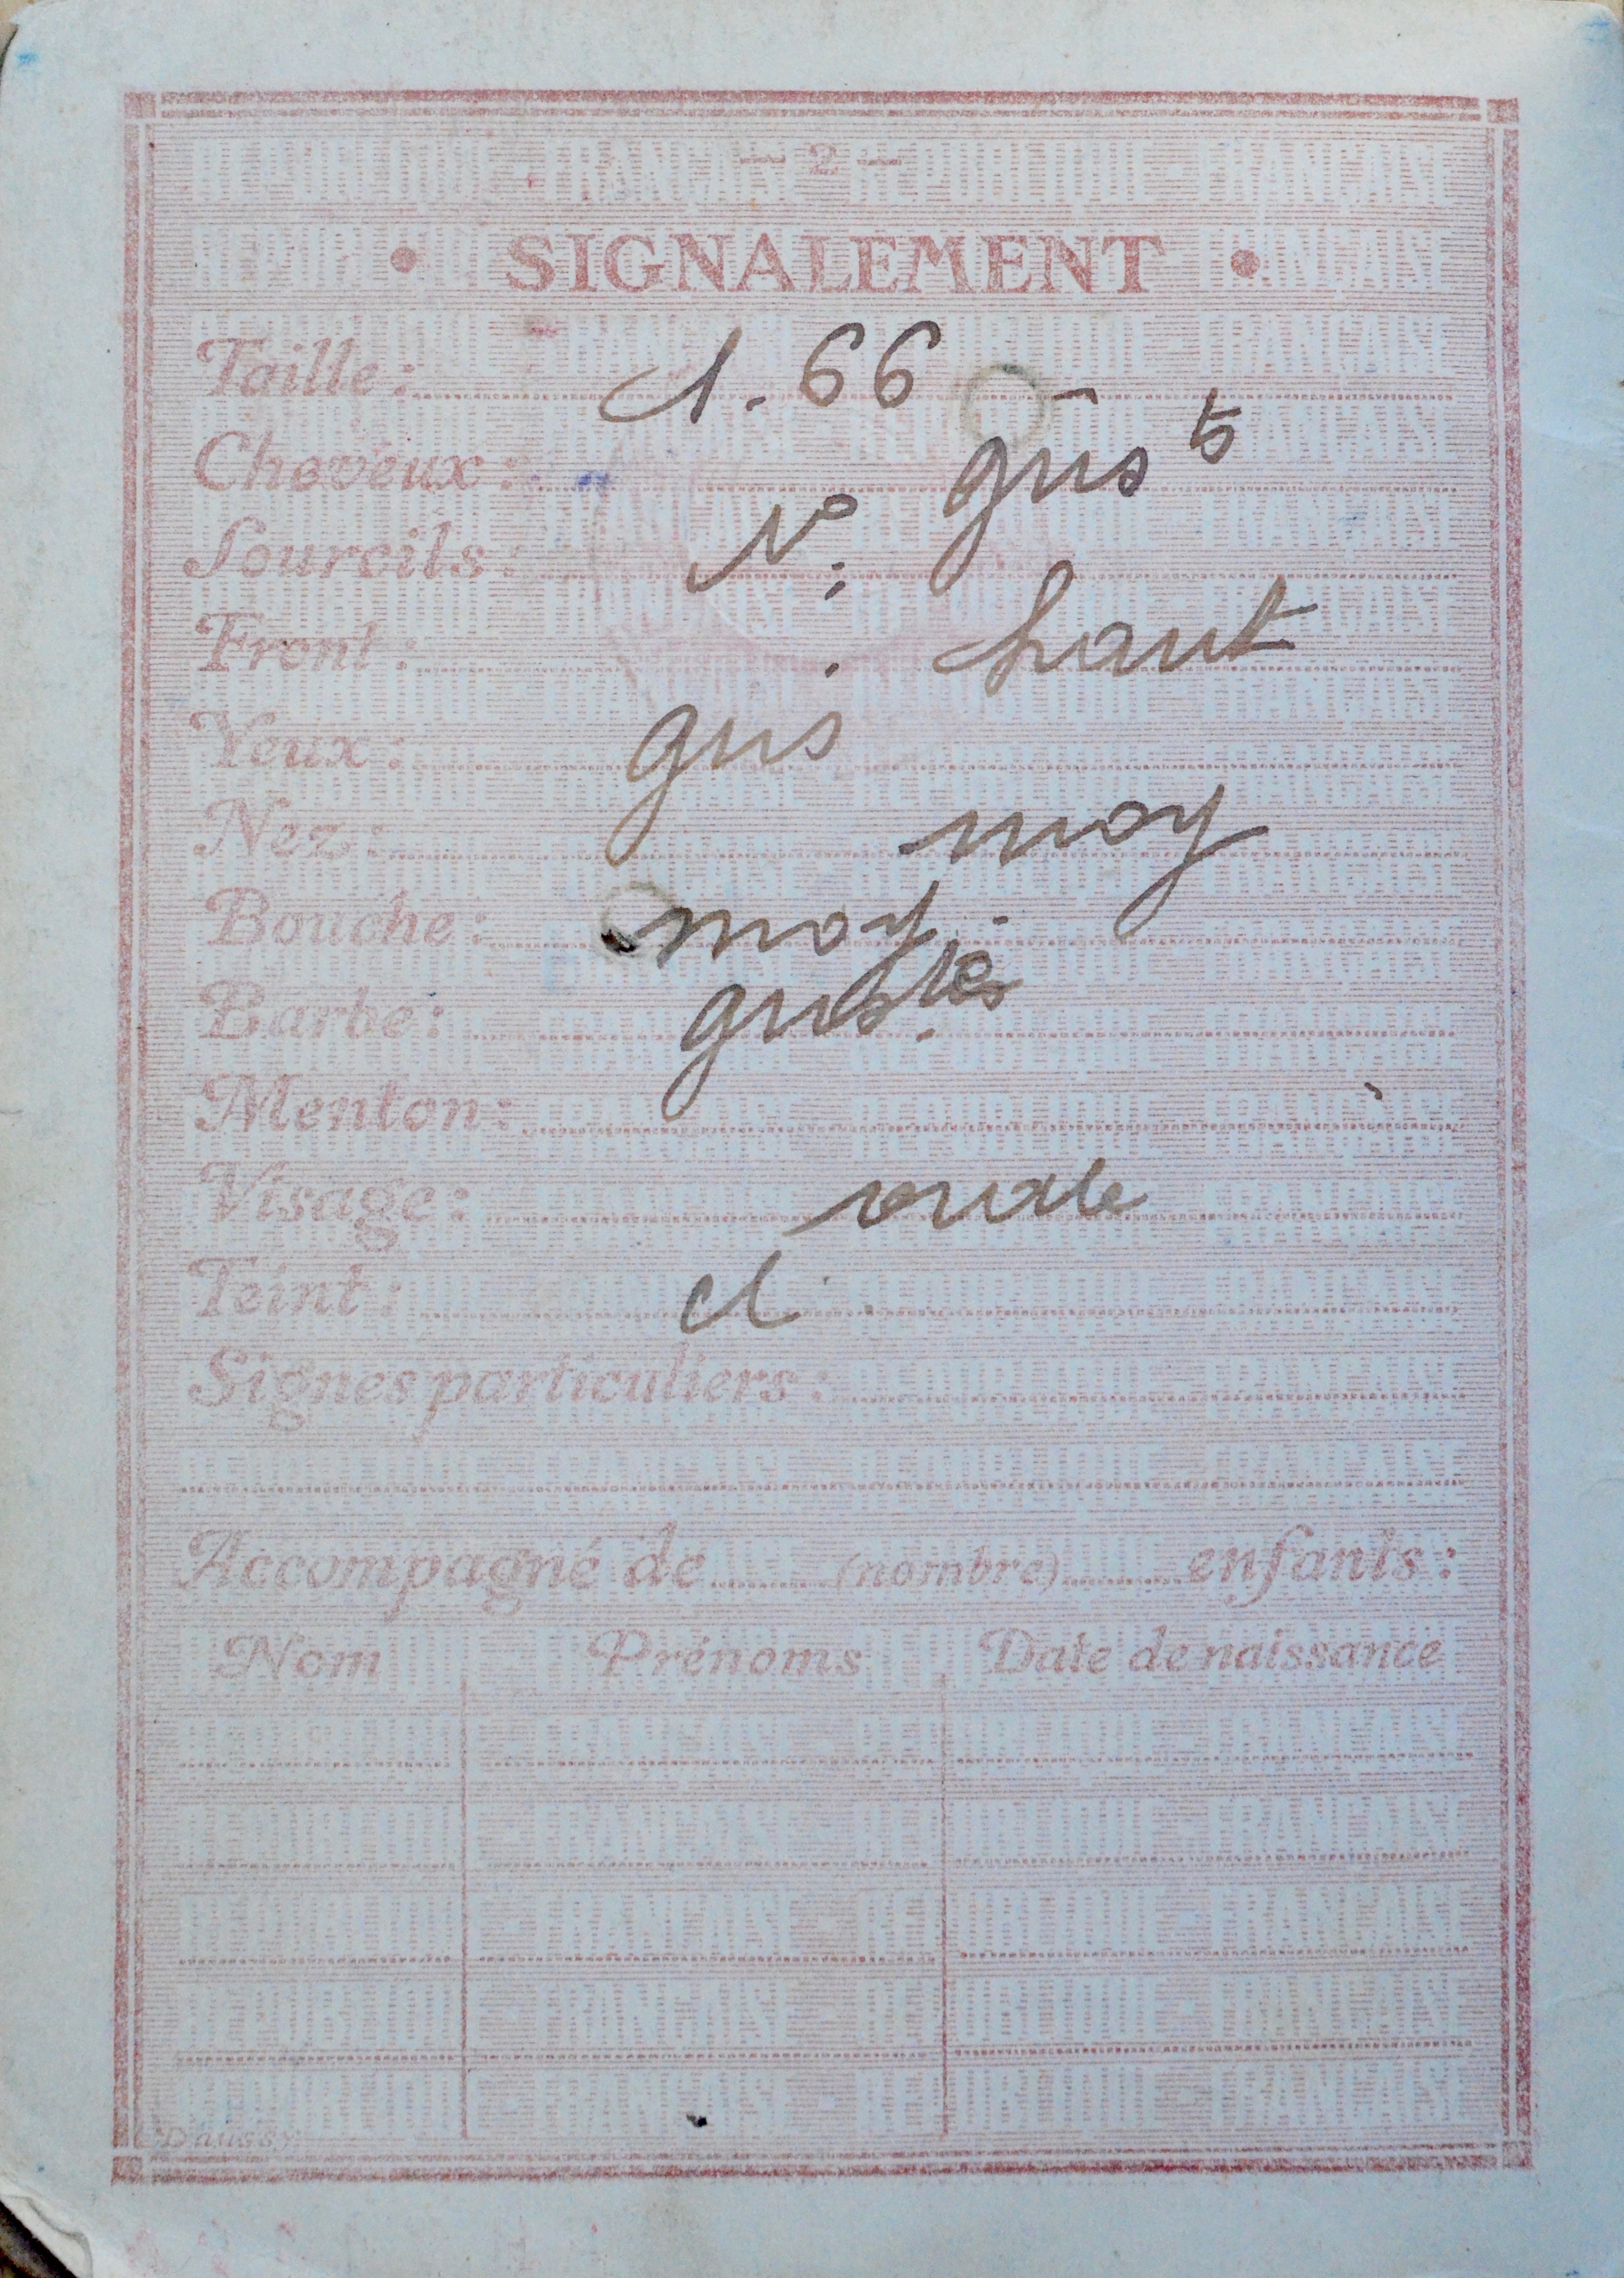 — 2 —
• SIGNALEMENT •
Taille: 1.66
Cheveux: gris
Sourcils:
Front: haut
Yeux: gris
Nez: moy
Bouche: moy
Barbe:
Menton:
Visage: ovale
Teint: cl.
Signes particuliers:
Accompagné de (nombre) enfants:
Nom Prénoms Date de naissance
Daussy